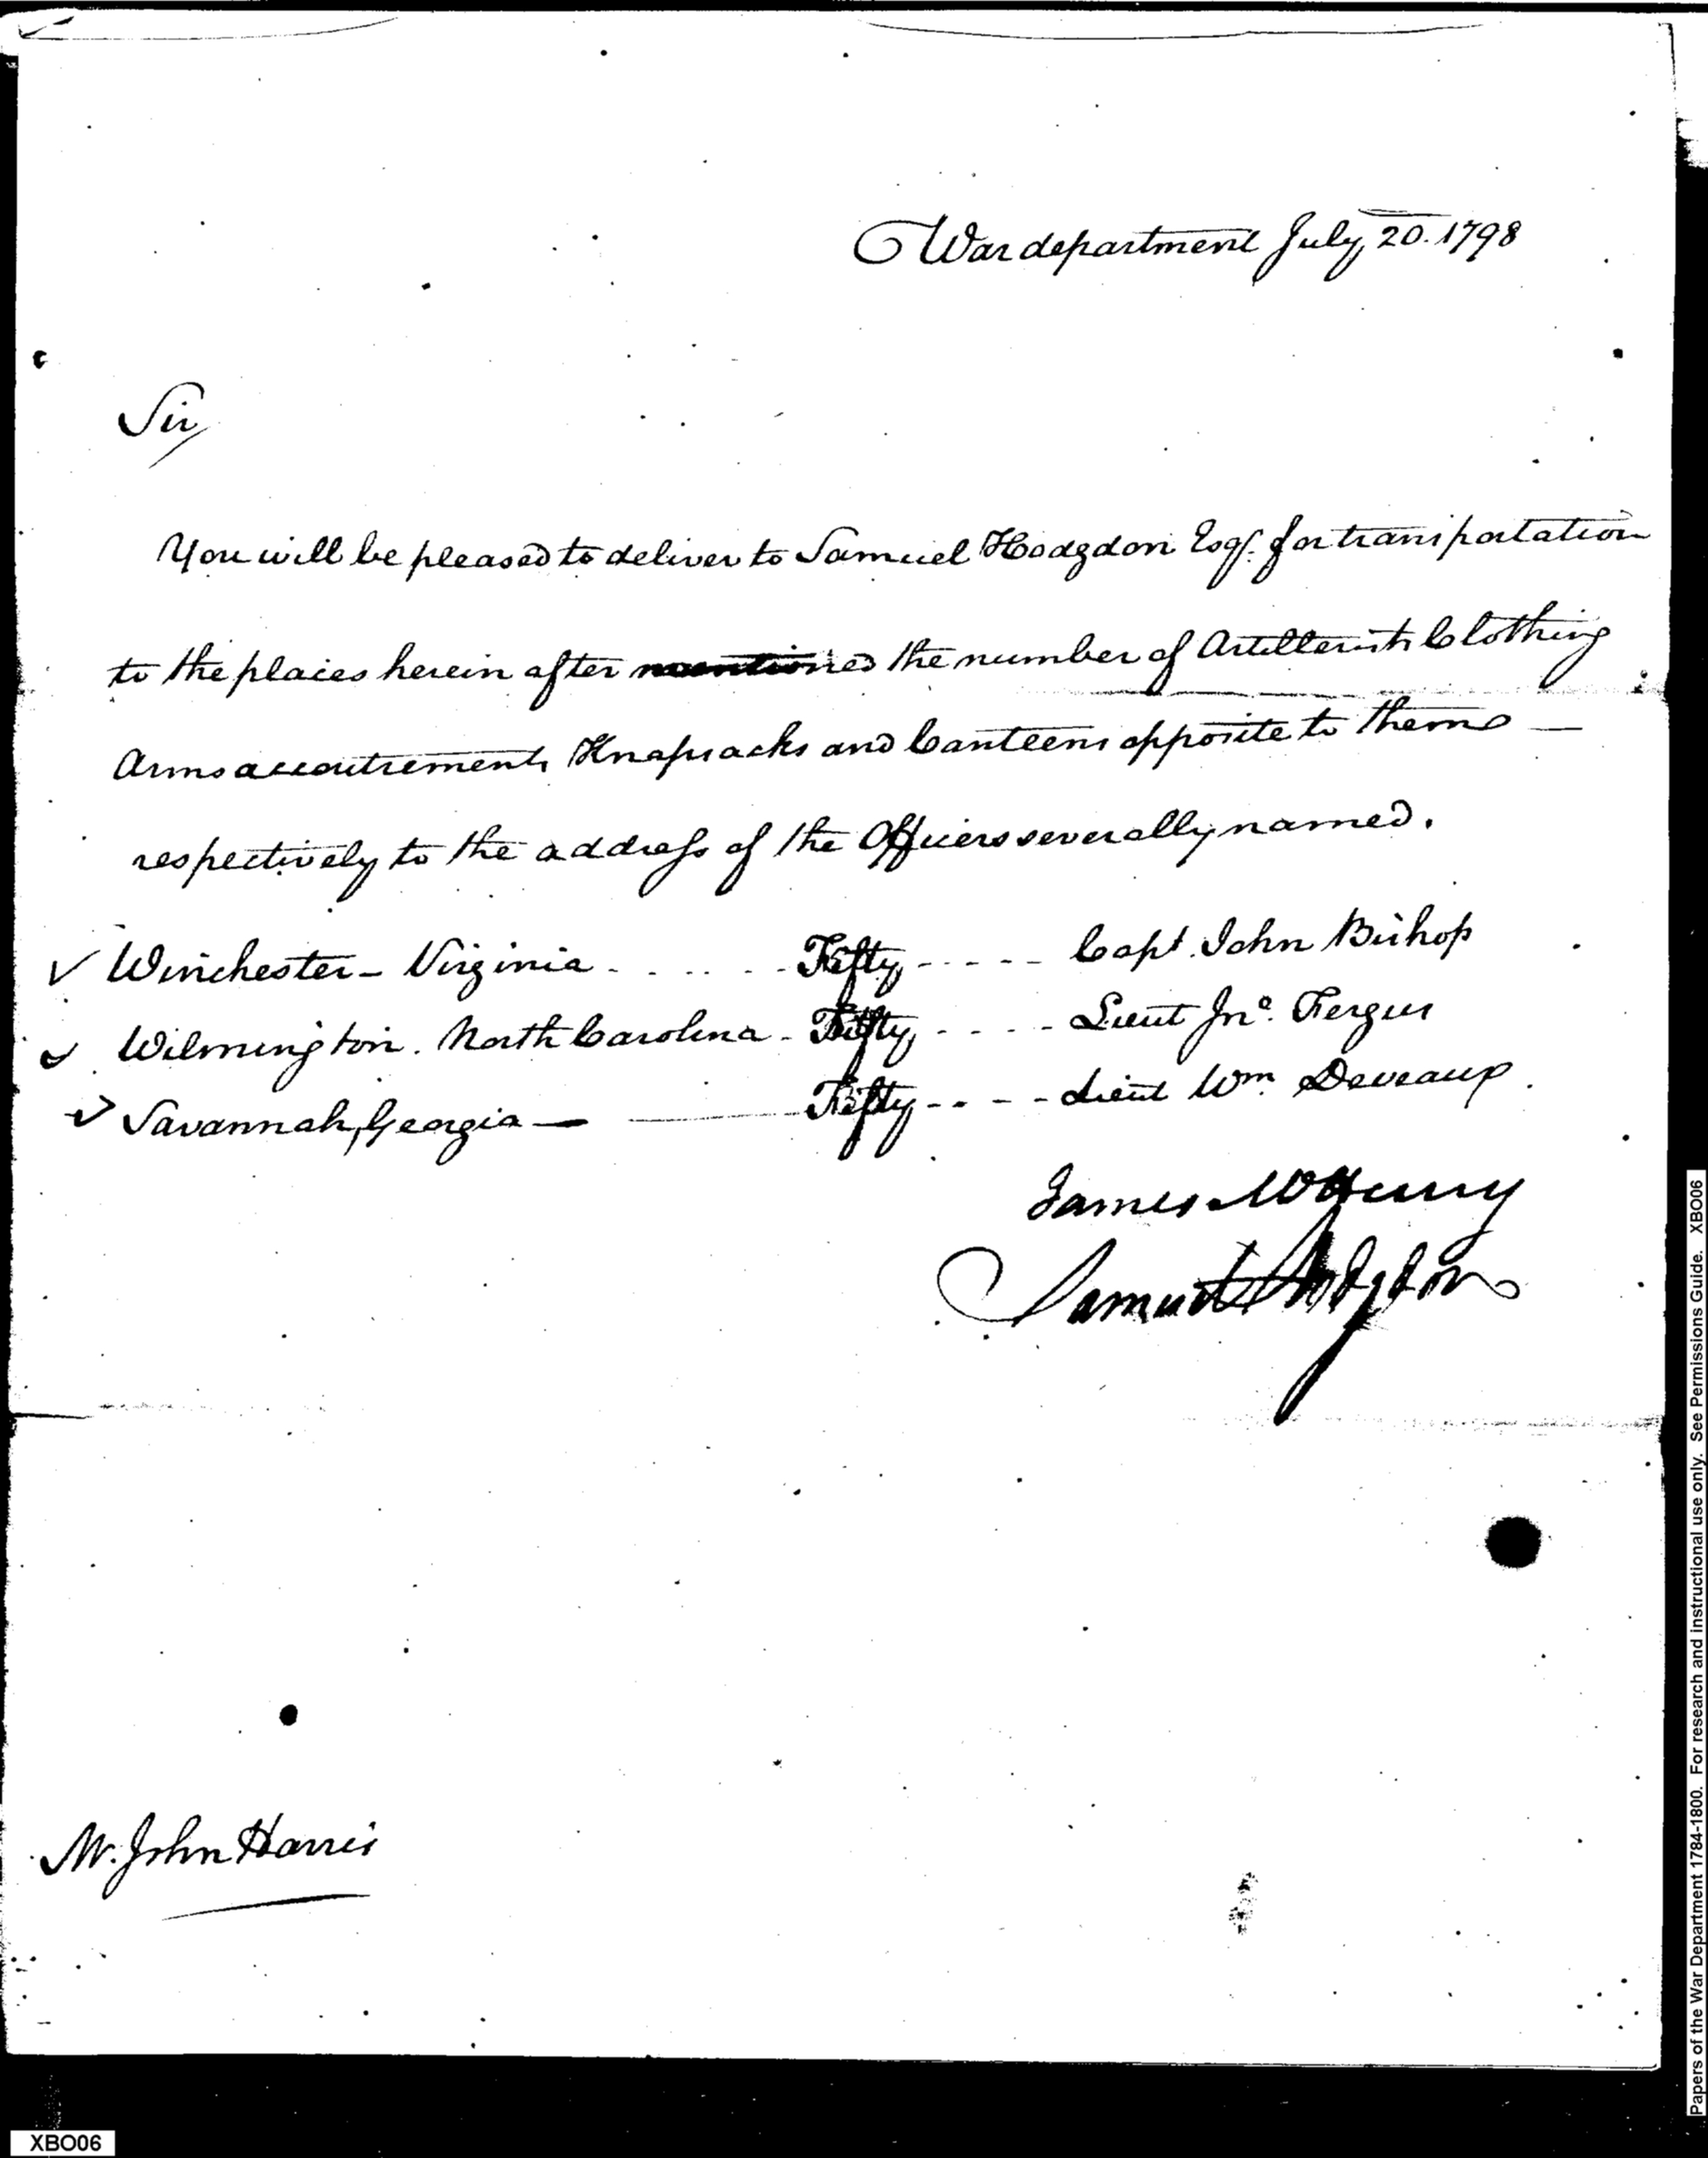 War department July 20. 1798
Sir
You will be pleased to deliver to Samuel Hodgdon Esqr. for transportation
to the places herein after mentioned the number of Artillerists Clothing
Arms accoutrements Knapsacks and Canteens opposite to them —
respectively to the address of the Officers severally named.
✓ Winchester - Virginia . . . . . . Fifty - - - - - Capt. John Bishop
✓ Wilmington. North Carolina - Fifty - - - - Lieut Jno. Fergus
✓ Savannah, Georgia — Fifty - - - - Lieut Wm. Deveaux.
James McHenry
Samuel Hodgdon
Mr. John Harris
XBO06
Papers of the War Department 1784-1800. For research and instructional use only. See Permissions Guide. XBO06